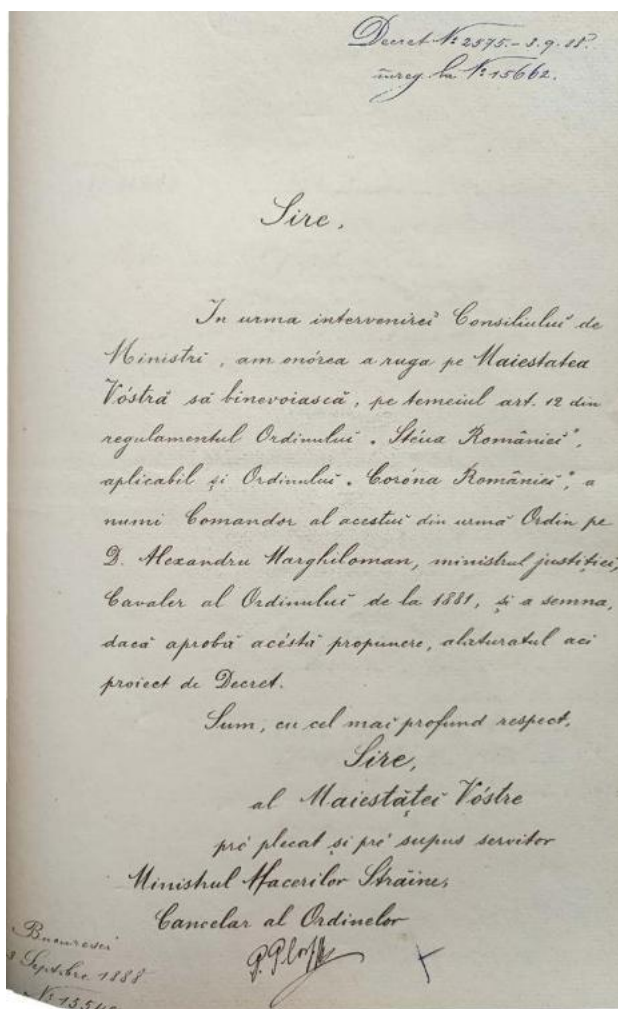 Decret № 2575.- 3.9.88.
înreg. la № 15662.
Sire,
In urma intervenireĭ Consiliuluĭ de
Miniștri, am onórea a ruga pe Maiestatea
Vóstră să binevoiască, pe temeiul art. 12 din
regulamentul Ordinuluĭ „Stéua Românieĭ",
aplicabil și Ordinuluĭ „Coróna Românieĭ", a
numi Comandor al acestuĭ din urmă Ordin pe
D. Alexandru Marghiloman, ministrul justiției,
Cavaler al Ordinuluĭ de la 1881, și a semna,
dacă aprobă acéstă propunere, alăturatul aci
proiect de Decret.
Sum, cu cel maĭ profund respect,
Sire,
al Maiestățeĭ Vóstre
pré plecat și pré supus servitor
Ministrul Afacerilor Străine,
Cancelar al Ordinelor
Bucuresci
3 Septembre 1888